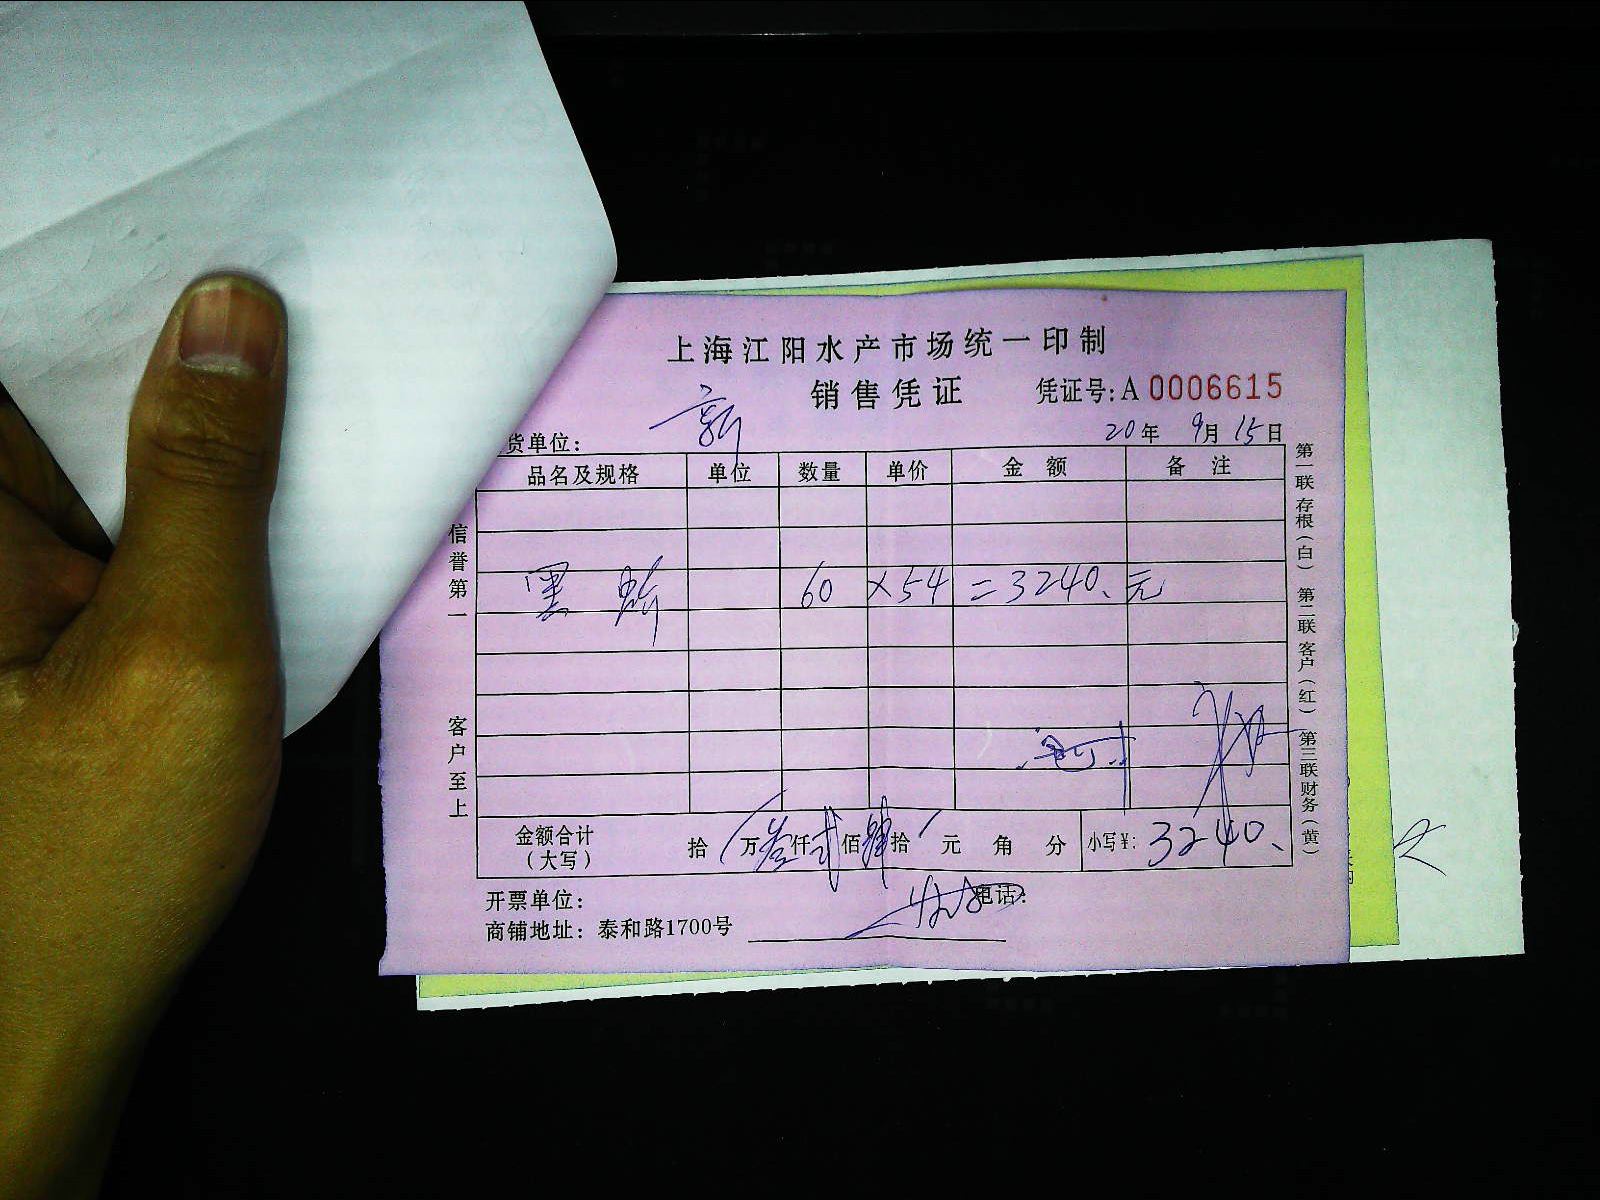 上海江阳水产市场统一印制
销售凭证 凭证号:A 0006615
货单位: 新 20年 9月 15日
品名及规格 单位 数量 单价 金额 备注
黑 60 ×54 =3240、元
金额合计(大写) 拾 万叁仟贰佰肆拾 元 角 分 小写¥: 3240、
开票单位: 电话:
商铺地址: 泰和路1700号
信誉第一 客户至上
第一联存根(白) 第二联客户(红) 第三联财务(黄)